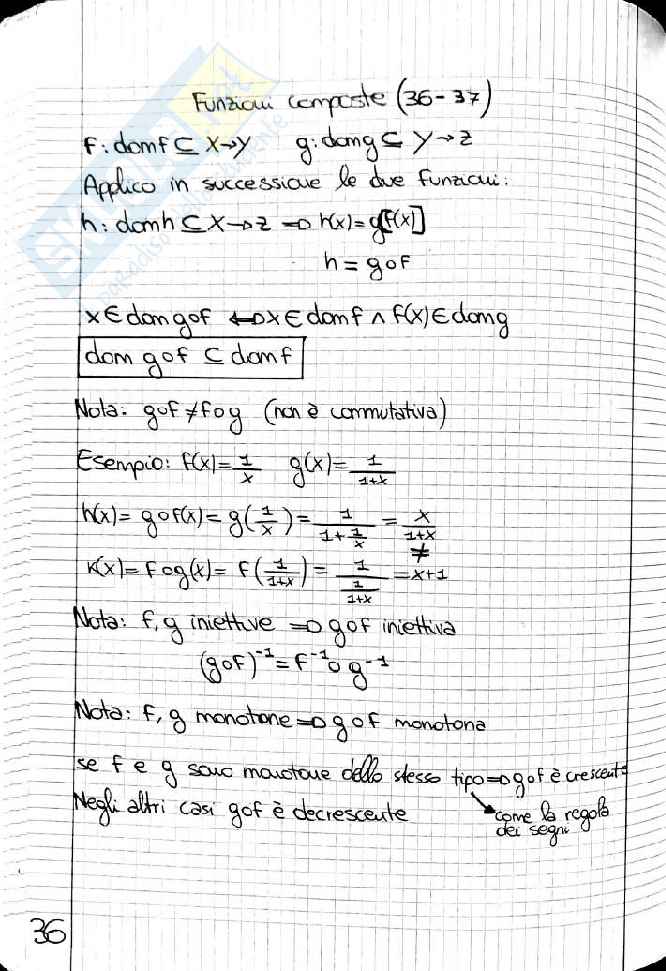 Funzioni composte (36-37)
f: domf ⊆ X→Y   g: domg ⊆ Y→Z
Applico in successione le due funzioni:
h: domh ⊆ X→Z ⇒ h(x)=g[f(x)]
h = g∘f
x∈dom g∘f ⇔ x∈domf ∧ f(x)∈domg
dom g∘f ⊂ domf
Nota: g∘f ≠ f∘g (non è commutativa)
Esempio: f(x)=1/x   g(x)=1/(1+x)
h(x)= g∘f(x)= g(1/x)= 1/(1+1/x) = x/(1+x)
≠
k(x)= f∘g(x)= f(1/(1+x))= 1/(1/(1+x)) =x+1
Nota: f, g iniettive ⇒ g∘f iniettiva
(g∘f)⁻¹= f⁻¹∘g⁻¹
Nota: f, g monotone ⇒ g∘f monotona
se f e g sono monotone dello stesso tipo ⇒ g∘f è crescente
Negli altri casi g∘f è decrescente
come la regola
dei segni
36